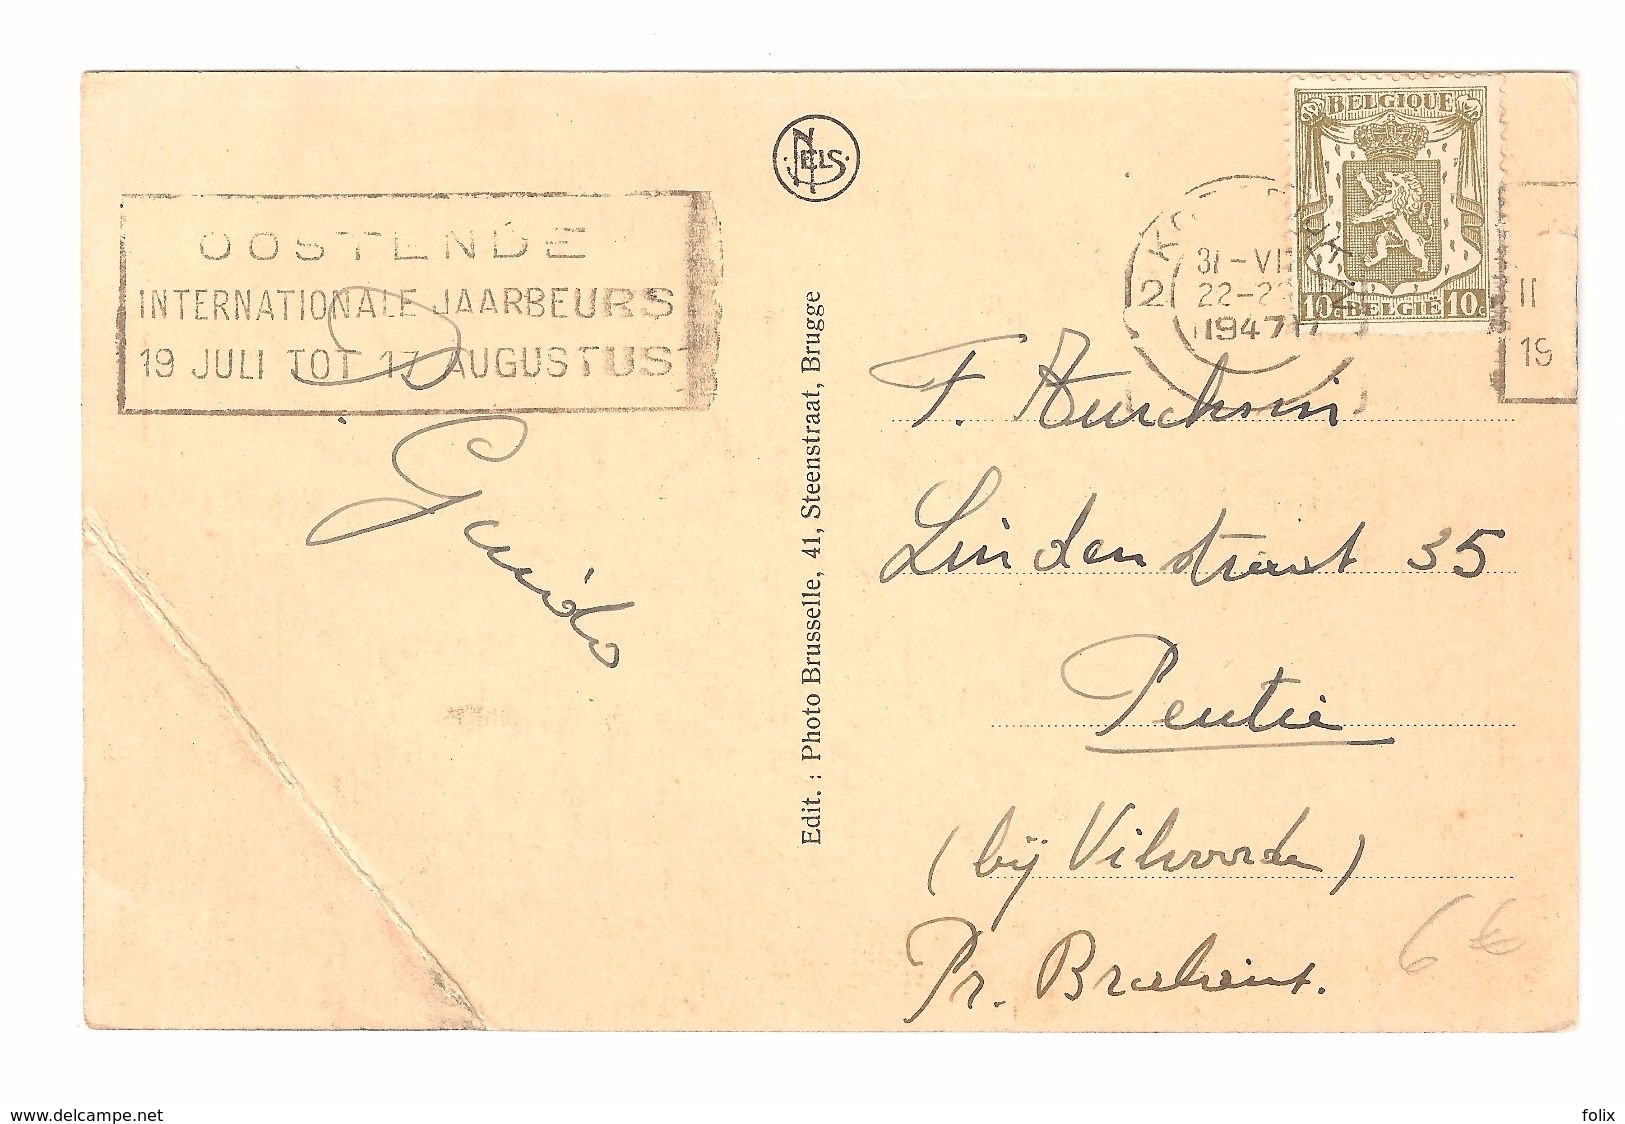 NELS
BELGIQUE
10c BELGIË 10c
OOSTENDE
INTERNATIONALE JAARBEURS
19 JULI TOT 17 AUGUSTUS
2
31-VII
22-23
1947
II
19
Guido
Edit. : Photo Brusselle, 41, Steenstraat, Brugge
F.
Lindenstraat 35
Peutie
(bij Vilvoorde)
Pr. Brabant.
6€
www.delcampe.net
folix